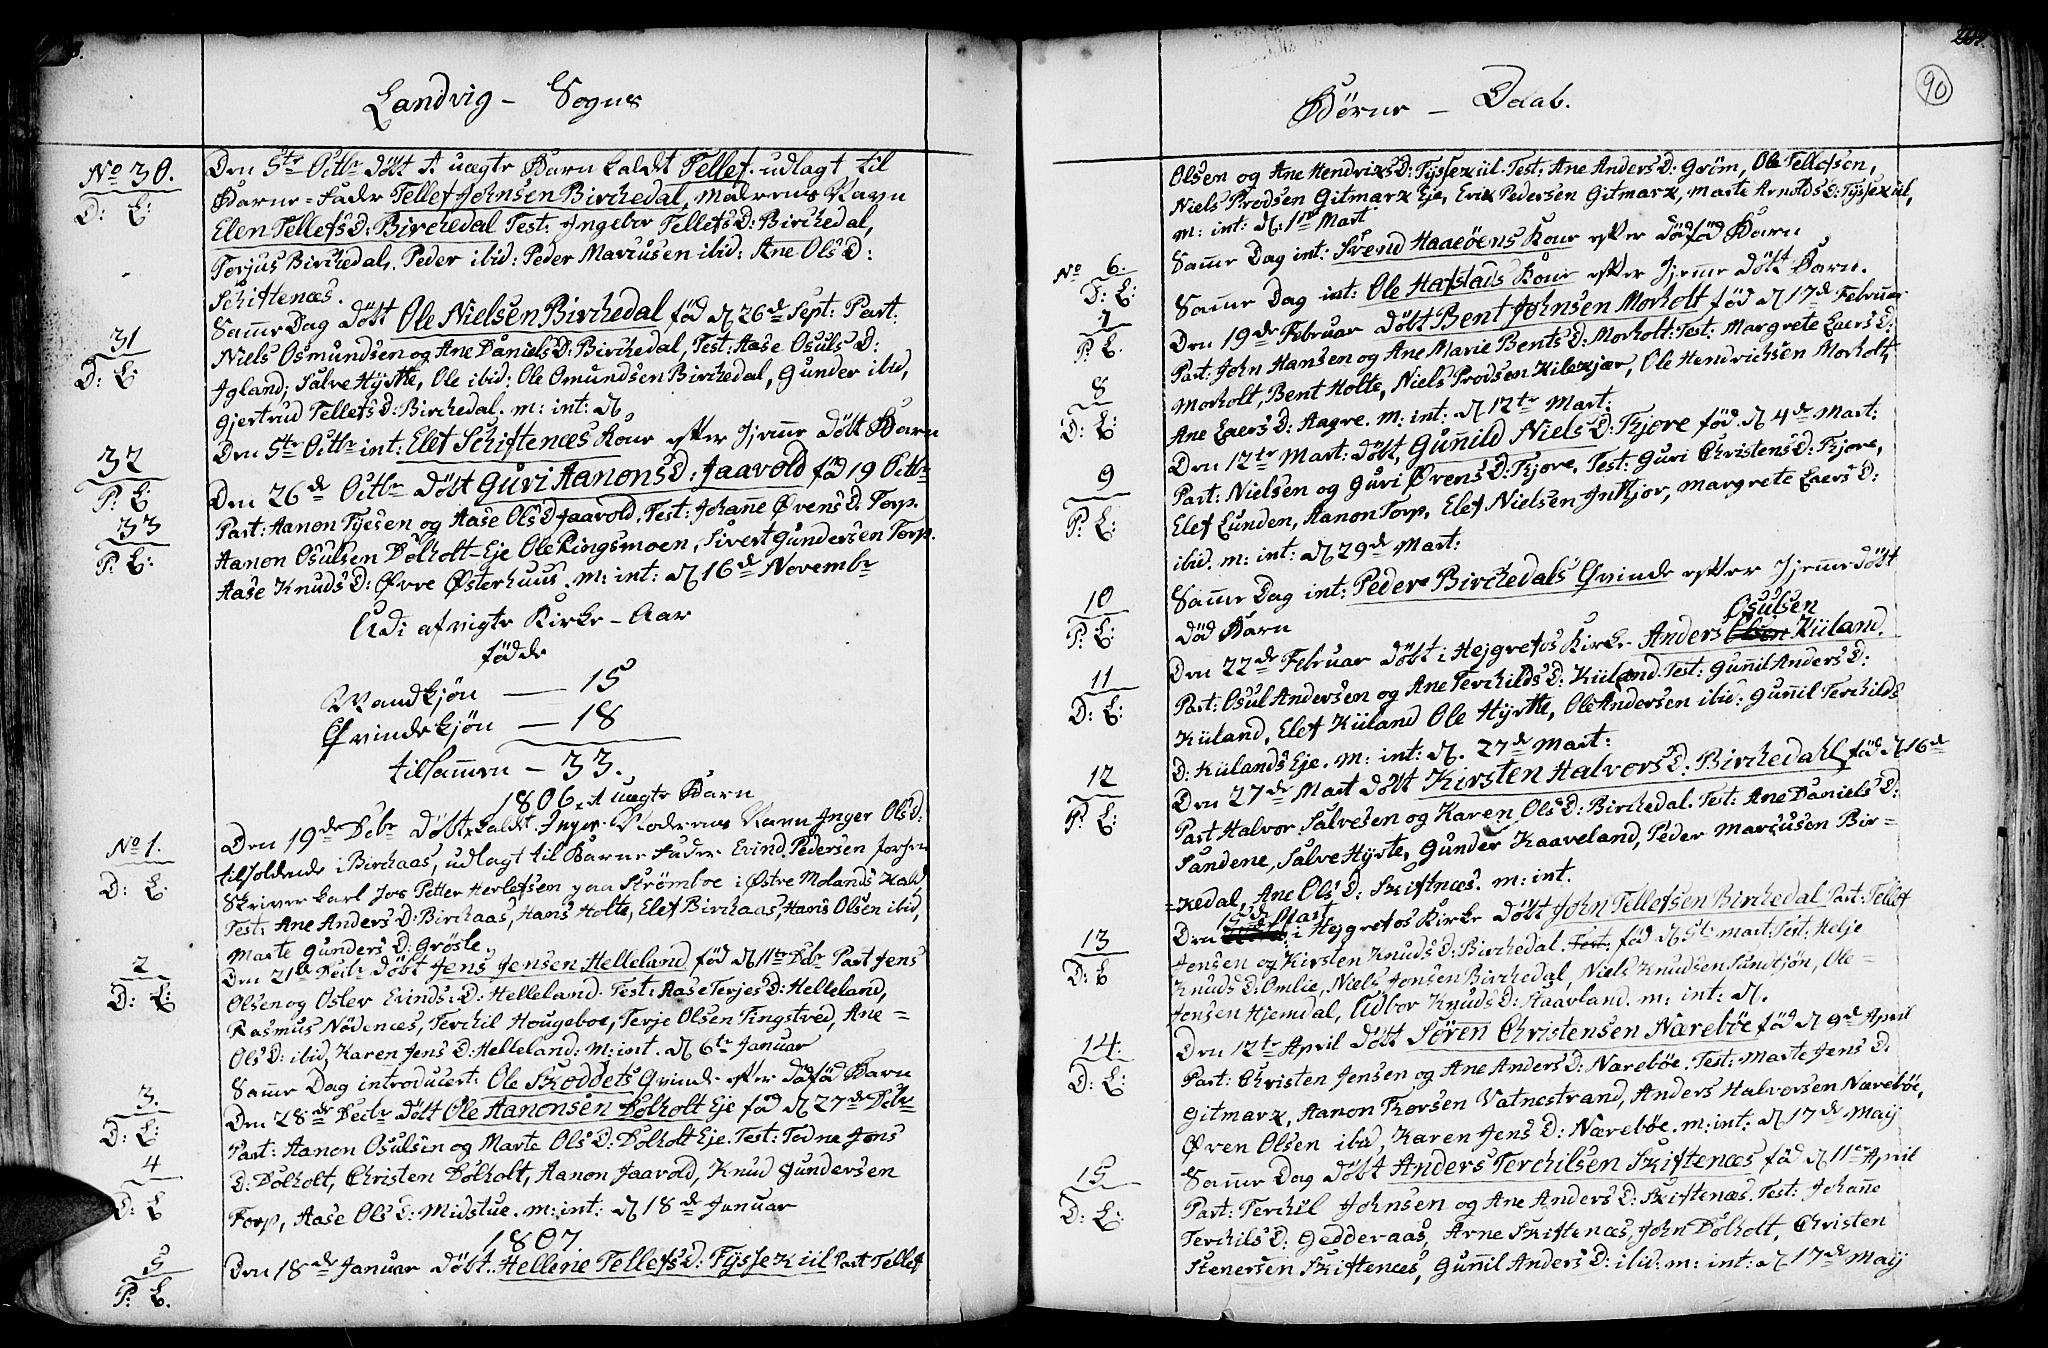 Landvig - Sogns
No 30.
D: L:
Den 5te Octbr døbt 1 uægte Barn kaldt Tellef. udlagt til
Barne-Fader Tellef Johnsen Birchedal, Moderens Navn
Elen Tellefs D: Birchedal Test: Ingebor Tellefs D: Birchedal,
Torjus Birchedal, Peder ibid: Peder Marcusen ibid: Ane Ols D:
Schiftenes.
31
D: L:
Samme Dag døbt Ole Nielsen Birchedal fød d 26de Sept: Part:
Niels Osmundsen og Ane Daniels D: Birchedal, Test: Aase Osuls D:
Igland; Salve Hÿrtte, Ole ibid: Ole Omundsen Birchedal, Gunder ibid,
Gjertrud Tellefs D: Birchedal. m: int: d.
32
P: L:
Den 5te Octbr int: Elef Schiftenæs Kone efter hjemme døbt Barn
33
P: L:
Den 26de Octbr døbt Guri Aanons D: Jaavold fød 19 Octbr
Part: Aanon Tÿesen og Aase Ols D Jaavold. Test: Johanne Øvens D: Torp.
Aanon Osulsen Dolholt-Eje Ole Ringsmoen, Sivert Gundersen Torp.
Aase Knuds D: Øvre Østerhuus. m: int: d 16de Novembr
Udi afvigte Kirke-Aar
fødde
Mandkjøn — 15
Qvindekjøn — 18
tilsammen — 33.
1806. 1 uægte Barn
No 1.
D: L:
Den 19de Debr døbt kaldt Inger. Moderens Navn Inger Ols D:
tilholdende i Birchaas, udlagt til Barne Fader Evind Pedersen
Skriver karl hos Petter Herlefsen paa Strømboe i Østre Molands
Test: Ane Anders D: Birchaas, Hans Holte, Elef Birchaas, Hans Olsen ibid,
Marte Gunders D: Grøsle.
2
D: L:
Den 21de Decbr døbt Jens Jensen Helleland fød d 11te Debr Part Jens
Olsen og Osler Evinds: D: Helleland. Test: Aase Terjes D: Helleland,
Rasmus Nødenæs, Terchil Hougeboe, Terje Olsen Tingstved, Ane-
Ols D: ibid, Karen Jens D: Helleland: m: int. d 6te Januar
Samme Dag introducert: Ole Skoddets Qvinde efter dødfød Barn
3.
D: L:
Den 28de Decbr døbt Ole Aanonsen Dolholt Eje fød d 27de Debr
Part: Aanon Osulsen og Marte Ols D: Dolholt Eje. Test: Todne Jens
4
D: L
D: Dolholt, Christen Dolholt, Aanon Jaavold, Knud Gundersen
Torp, Aase Ols D: Midstue. m: int: d 18de Januar
1807
5
P: L.
Den 18de Januar døbt. Hellene Tellefs D: Tÿssekiil Part Tellef
Børne - Daab.
90
Olsen og Ane Hendrixs D: Tÿssekiil. Test: Ane Anders D: Grøm, Ole Tellefsen,
Niels Prodsen Gitmark Eje, Erik Pedersen Gitmark, Marte Arnolds D: Tÿssekiil,
m: int: d: 1ste Mart
No 6.
D: L:
Samme Dag int: Svend Haaøens Kone efter dødfød Barn
Samme Dag int: Ole Hafstads Kone efter hjemme døbt Barn.
7
P: L.
Den 19de Februar døbt Bent Johnsen Morholt fød d 17de Februar
Part: John Hansen og Ane Marie Bents D: Morholt: Test: Margrete Laers D:
8
D: L:
Morholt, Bent Holte, Niels Prodsen Kilekjær, Ole Hendrichsen Morholt,
Ane Laers D: Aagre. m: int: d 12te Mart:
Den 12te Mart: døbt, Gunnild Niels D: Kjore fød d 4de Mart:
9
P: L:
Part: Nielsen og Guri Øvens D: Kjore. Test: Guri Christens D: Kjore,
Elef Lunden, Aanon Torp, Elef Nielsen Innkjor, Margrete Laers D:
ibid. m: int: d 29de Mart:
10
P: L:
Samme Dag int: Peder Birchedals Qvinde efter hjemmedøbt
død Barn
Osulsen
11
D: L:
Den 22de Februar døbt i Hejgretos Kirke Anders Olsen Kÿland.
Part: Osul Andersen og Ane Terchilds D: Kÿland. Test: Gunnil Anders D:
Kÿland, Elef Kÿland Ole Hÿrtte, Ole Andersen ibid: Gunnil Terchilds
D: Kÿlands Eje. m: int: d. 27de Mart:
12
P: L:
Den 27de Mart døbt Kirsten Halvors D: Birchedahl fød d 16de
Part Halvor Salvesen og Karen Ols D: Birchedal. Test: Ane Daniels D:
Sandene, Salve Hÿrte, Gunder Kaaveland, Peder Marcusen Bir-
-kedal, Ane Ols D: Skiftnes. m: int.
15de Mart
13
D: L
Den i Hejgretos Kirke døbt John Tellefsen Birchedal Part: Tellef
Jensen og Kirsten Knuds D: Birchedal. Test: fød d 5te mart: Test: Helje
Knuds D: Omlie, Niels Jonsen Birchedal, Niels Knudsen Sundtjøn, Ole-
Jonsen Hjemdal, Udbor Knuds D: Haavland. m: int: d.
14.
D: L:
Den 12te April døbt Søren Christensen Nærebøe fød d 9de April
Part: Christen Jensen og Ane Anders D: Narebøe. Test: Marte Jens D:
Gitmark, Aanon Thorsen Vatnestrand, Anders Halvorsen Narebøe,
Øven Olsen ibid, Karen Jens D: Nærebøe. m: int: d 17de Maij
15
D: L:
Samme Dag døbt Anders Terchilsen Skiftenæs fød d 11te April
Part: Terchil Johnsen og Ane Anders D: Skiftenæs. Test: Johanne
Terchils D: Gedderaas, Arne Skiftenæs, John Dolholt, Christen
Stenersen Skiftenæs, Gunnil Anders D: ibid: m: int: d 17de Maij